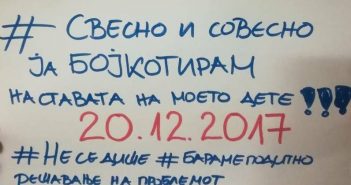 # СВЕСНО И СОВЕСНО
ЈА БОЈКОТИРАМ
НАСТАВАТА НА МОЕТО ДЕТЕ !!!
20.12.2017
#НЕ СЕ ДИШЕ #БАРАМЕ ПОДИТНО
РЕШАВАЊЕ НА ПРОБЛЕМОТ